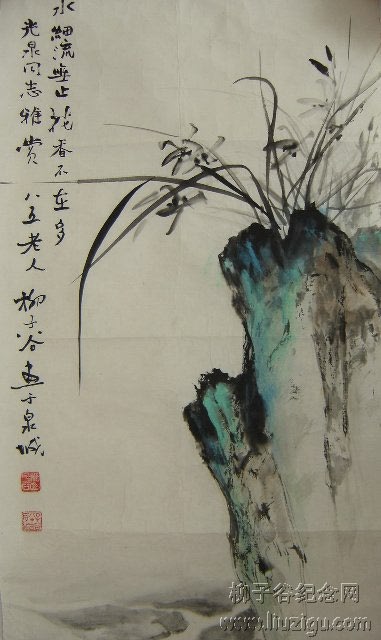 水细流无止花香不在多
光泉同志雅赏 八五老人 柳子谷画于泉城
柳子谷纪念网
www.liuzigu.com